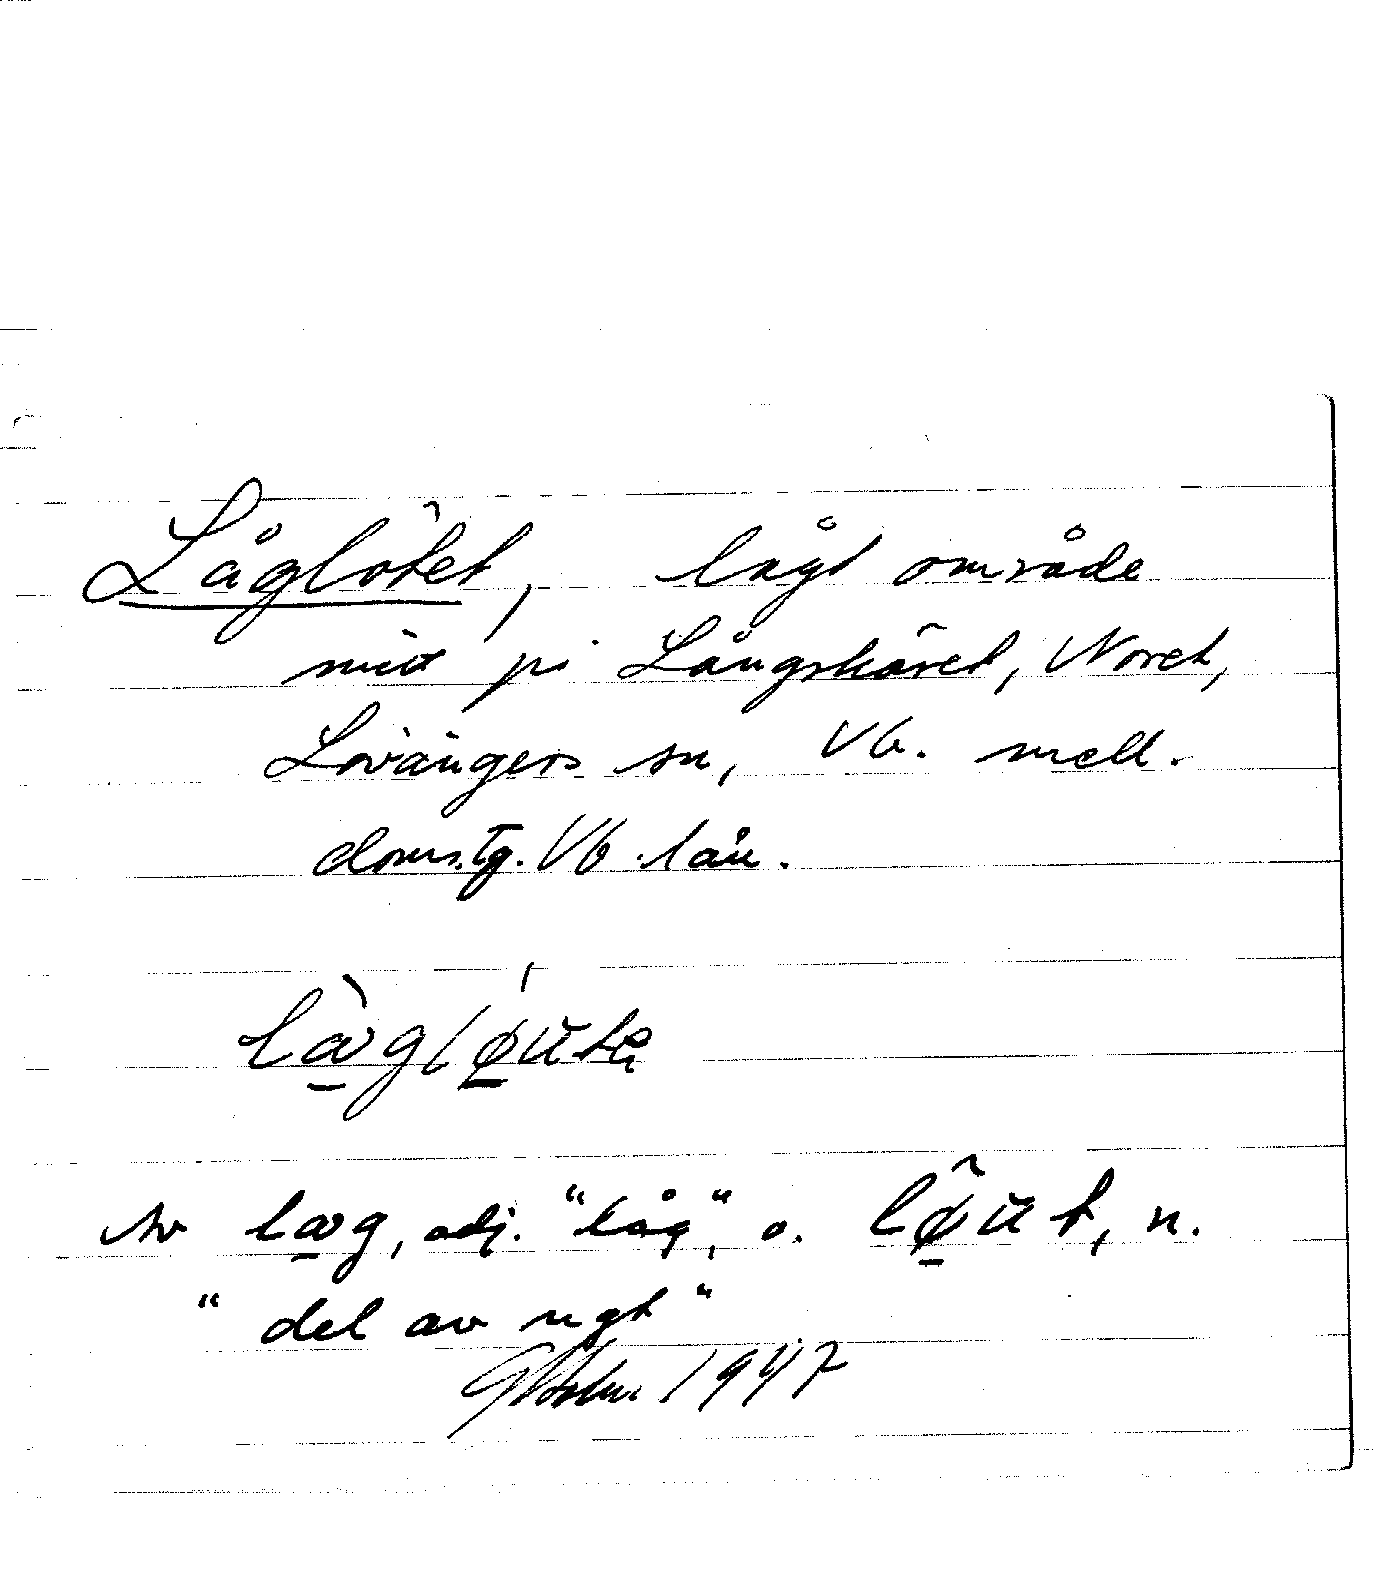 Låglötet, lågt område
mitt på Långskäret, Noret,
Lövångers sn, Vb. mell.
doms.tg. Vb. län.
Av læg, adj. "låg", o. lø̂ut, n.
"del av ngt"
1947